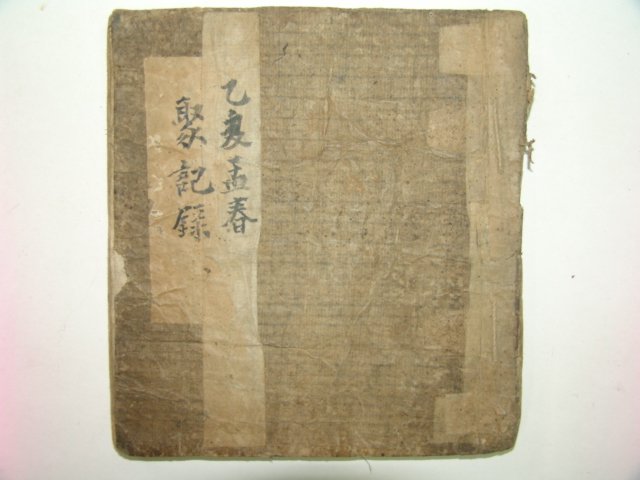 乙亥孟春
聚記録